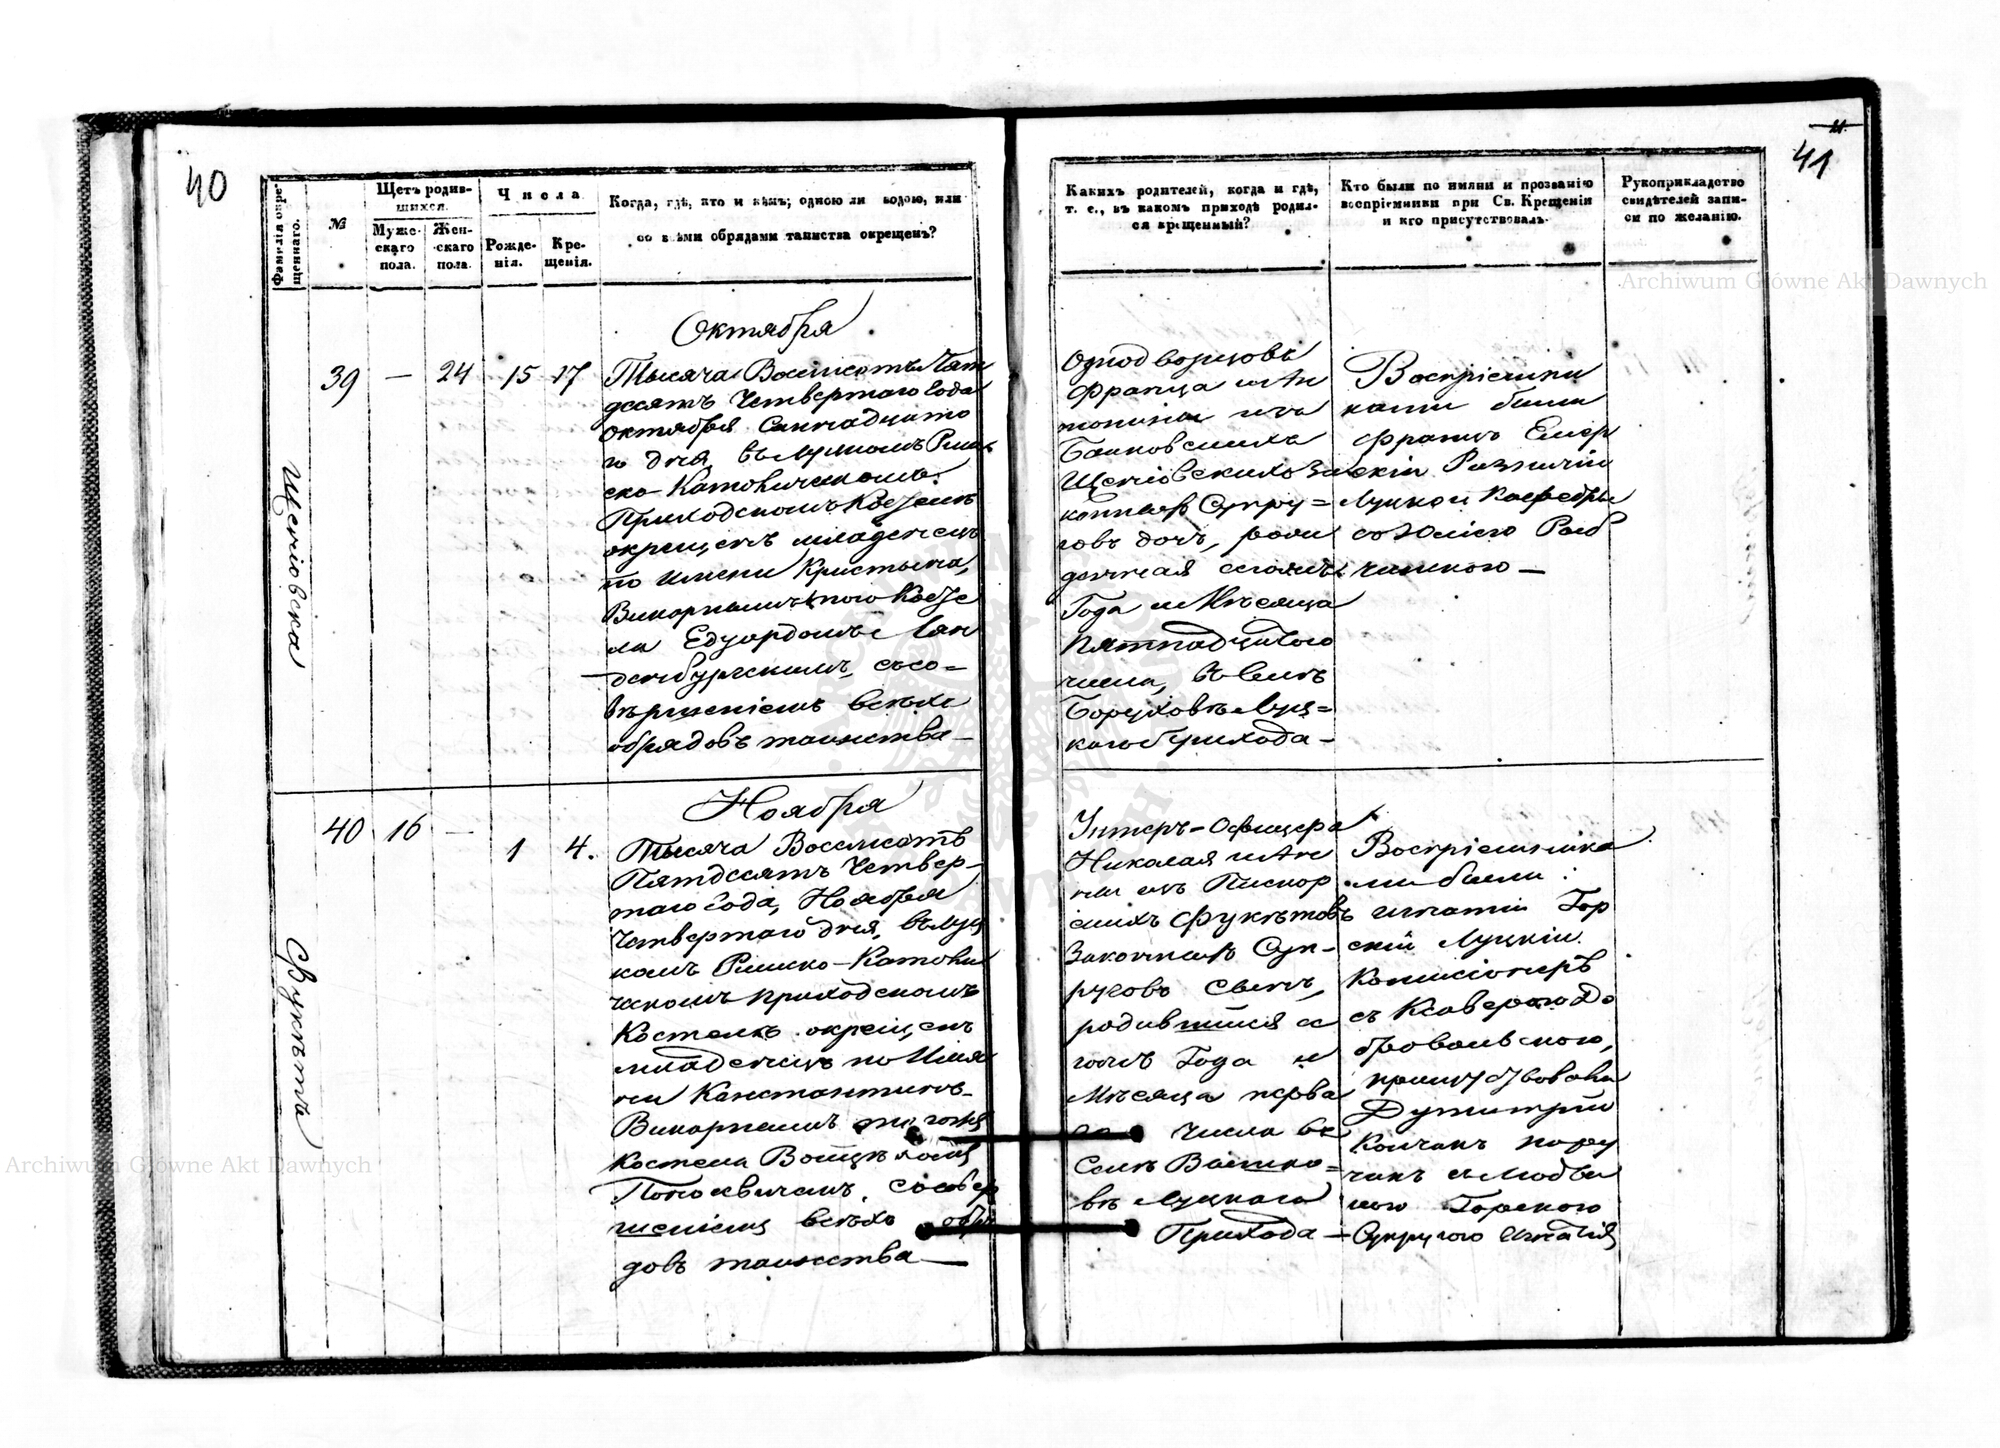 40
41
Фамилія окрещеннаго.
№
Щетъ родившихся.
Мужескаго пола.
Женскаго пола.
Числа
Рожденія.
Крещенія.
Когда, гдѣ, кто и кѣмъ; одною ли водою, или
со всѣми обрядами таинства окрещенъ?
Какихъ родителей, когда и гдѣ,
т. е., въ какомъ приходѣ родился
крещенный?
Кто были по имяни и прозванію
воспріемники при Св. Крещеніи
и кто присутствовалъ.
Рукоприкладство
свидѣтелей записи
по желанію.
Archiwum Główne Akt Dawnych
Октября
Щеніовска
39 — 24 15 17
Тысяча Восемсотъ Пят
десятъ Четвертаго Года
Октября Семнадцато
го дня, въ Луцкомъ Рим
ско-Католическомъ
Приходскомъ Костелѣ
окрещенъ младенецъ
по имени Кристына,
Викорнымъ того Косте
ла Едуардомъ Лан
денбургскимъ, съ со=
вършеніемъ всѣхъ
обрядовъ таинства—
Однодворцовъ
Франца и Ан
тонины изъ
Банковскихъ
Щеніовскихъ За
конныхъ Супру=
говъ дочь, рож
денная сегожъ
Года и Мѣсяца
Пятнадцатого
числа, въ селѣ
Боруховѣ Луц=
кого Прихода—
Воспріемни
ками были
Францъ
скій
Луцкой Кафедры
съ Юліею
—
Ноября
Фукѣта
40 16 — 1 4.
Тысяча Восемсотъ
Пятдесятъ Четвер-
таго Года, Ноября
Четвертаго дня, въ Луц
комъ Римско-Католи
ческомъ приходскомъ
Костелѣ окрещенъ
младенецъ по Имя
ни Константинъ
Викорнымъ тогожъ
Костела Войцѣхомъ
съ совер
шеніемъ всѣхъ обря
довъ таинства—
Унтеръ-Офицера
Николая и Ан
ны изъ Пискор
скихъ Фукѣтовъ
Законныхъ Суп-
руговъ сынъ,
родившійся се
гожъ Года и
Мѣсяца перва
го числа въ
Селѣ
вѣ Луцкаго
Прихода—
Воспріемника
ми были:
Игнатій Гор
скій Луцкій
Комисіонеръ
съ Ксаверою До
бровольскою,
присутствовали
Дмитрій
пору
чикъ съ Людви
кою Горскою
Супругою Игнатія
Archiwum Główne Akt Dawnych